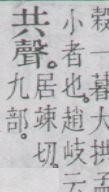 榖一曰大拱
小者也。趙岐云
共聲。居竦切。
九部。